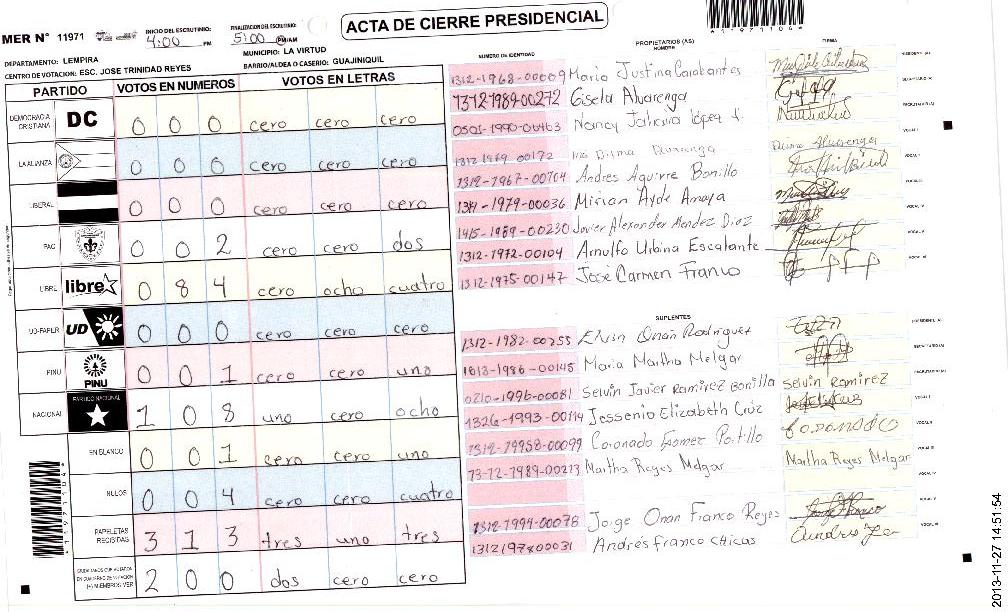 ACTA DE CIERRE PRESIDENCIAL
MER N° 11971
INICIO DEL ESCRUTINIO: 4:00 PM
FINALIZACION DEL ESCRUTINIO: 5:00 PM/AM
DEPARTAMENTO: LEMPIRA
MUNICIPIO: LA VIRTUD
CENTRO DE VOTACION: ESC. JOSE TRINIDAD REYES
BARRIO/ALDEA O CASERIO: GUAJINIQUIL
PARTIDO VOTOS EN NUMEROS VOTOS EN LETRAS
DEMOCRACIA CRISTIANA DC 0 0 0 cero cero cero
LA ALIANZA 0 0 0 cero cero cero
LIBERAL 0 0 0 cero cero cero
PAC 0 0 2 cero cero dos
LIBRE libre 0 8 4 cero ocho cuatro
UD-FAPER UD 0 0 0 cero cero cero
PINU PINU 0 0 1 cero cero uno
NACIONAL PARTIDO NACIONAL 1 0 8 uno cero ocho
EN BLANCO 0 0 1 cero cero uno
NULOS 0 0 4 cero cero cuatro
PAPELETAS RECIBIDAS 3 1 3 tres uno tres
2 0 0 dos cero cero
NUMERO DE IDENTIDAD PROPIETARIOS (AS) NOMBRE FIRMA
1312-1968-00009 Maria Justina
1312-1989-00272 Gisela Alvarenga
0501-1990-06463 Nancy López
1312 1969 00172 Dilma
1312-1967-00704 Andres Aguirre Bonilla
-1979-00036 Mirian Ayde Amaya
1415-1989-00230 Javier Alexander Mendez Diaz
1312-1972-00104 Arnulfo Urbina Escalante
1312-1975-00147 José Carmen Franco
SUPLENTES
1312-1982-00255 Elvin Onán Rodriguez
1613-1986-00145 Maria Martha Melgar
0210-1996-00081 Selvin Javier Ramirez Bonilla Selvin Ramirez
1326-1993-00114 Jessenio Elizabeth Cruz
1312-19958-00099 Coronado Gomez Portillo
1312-1989-00213 Martha Reyes Melgar Martha Reyes Melgar
1312-1994-00078 Jorge Onan Franco Reyes
1312197800031 Andrés Franco Chicas
2013-11-27 14:51:54